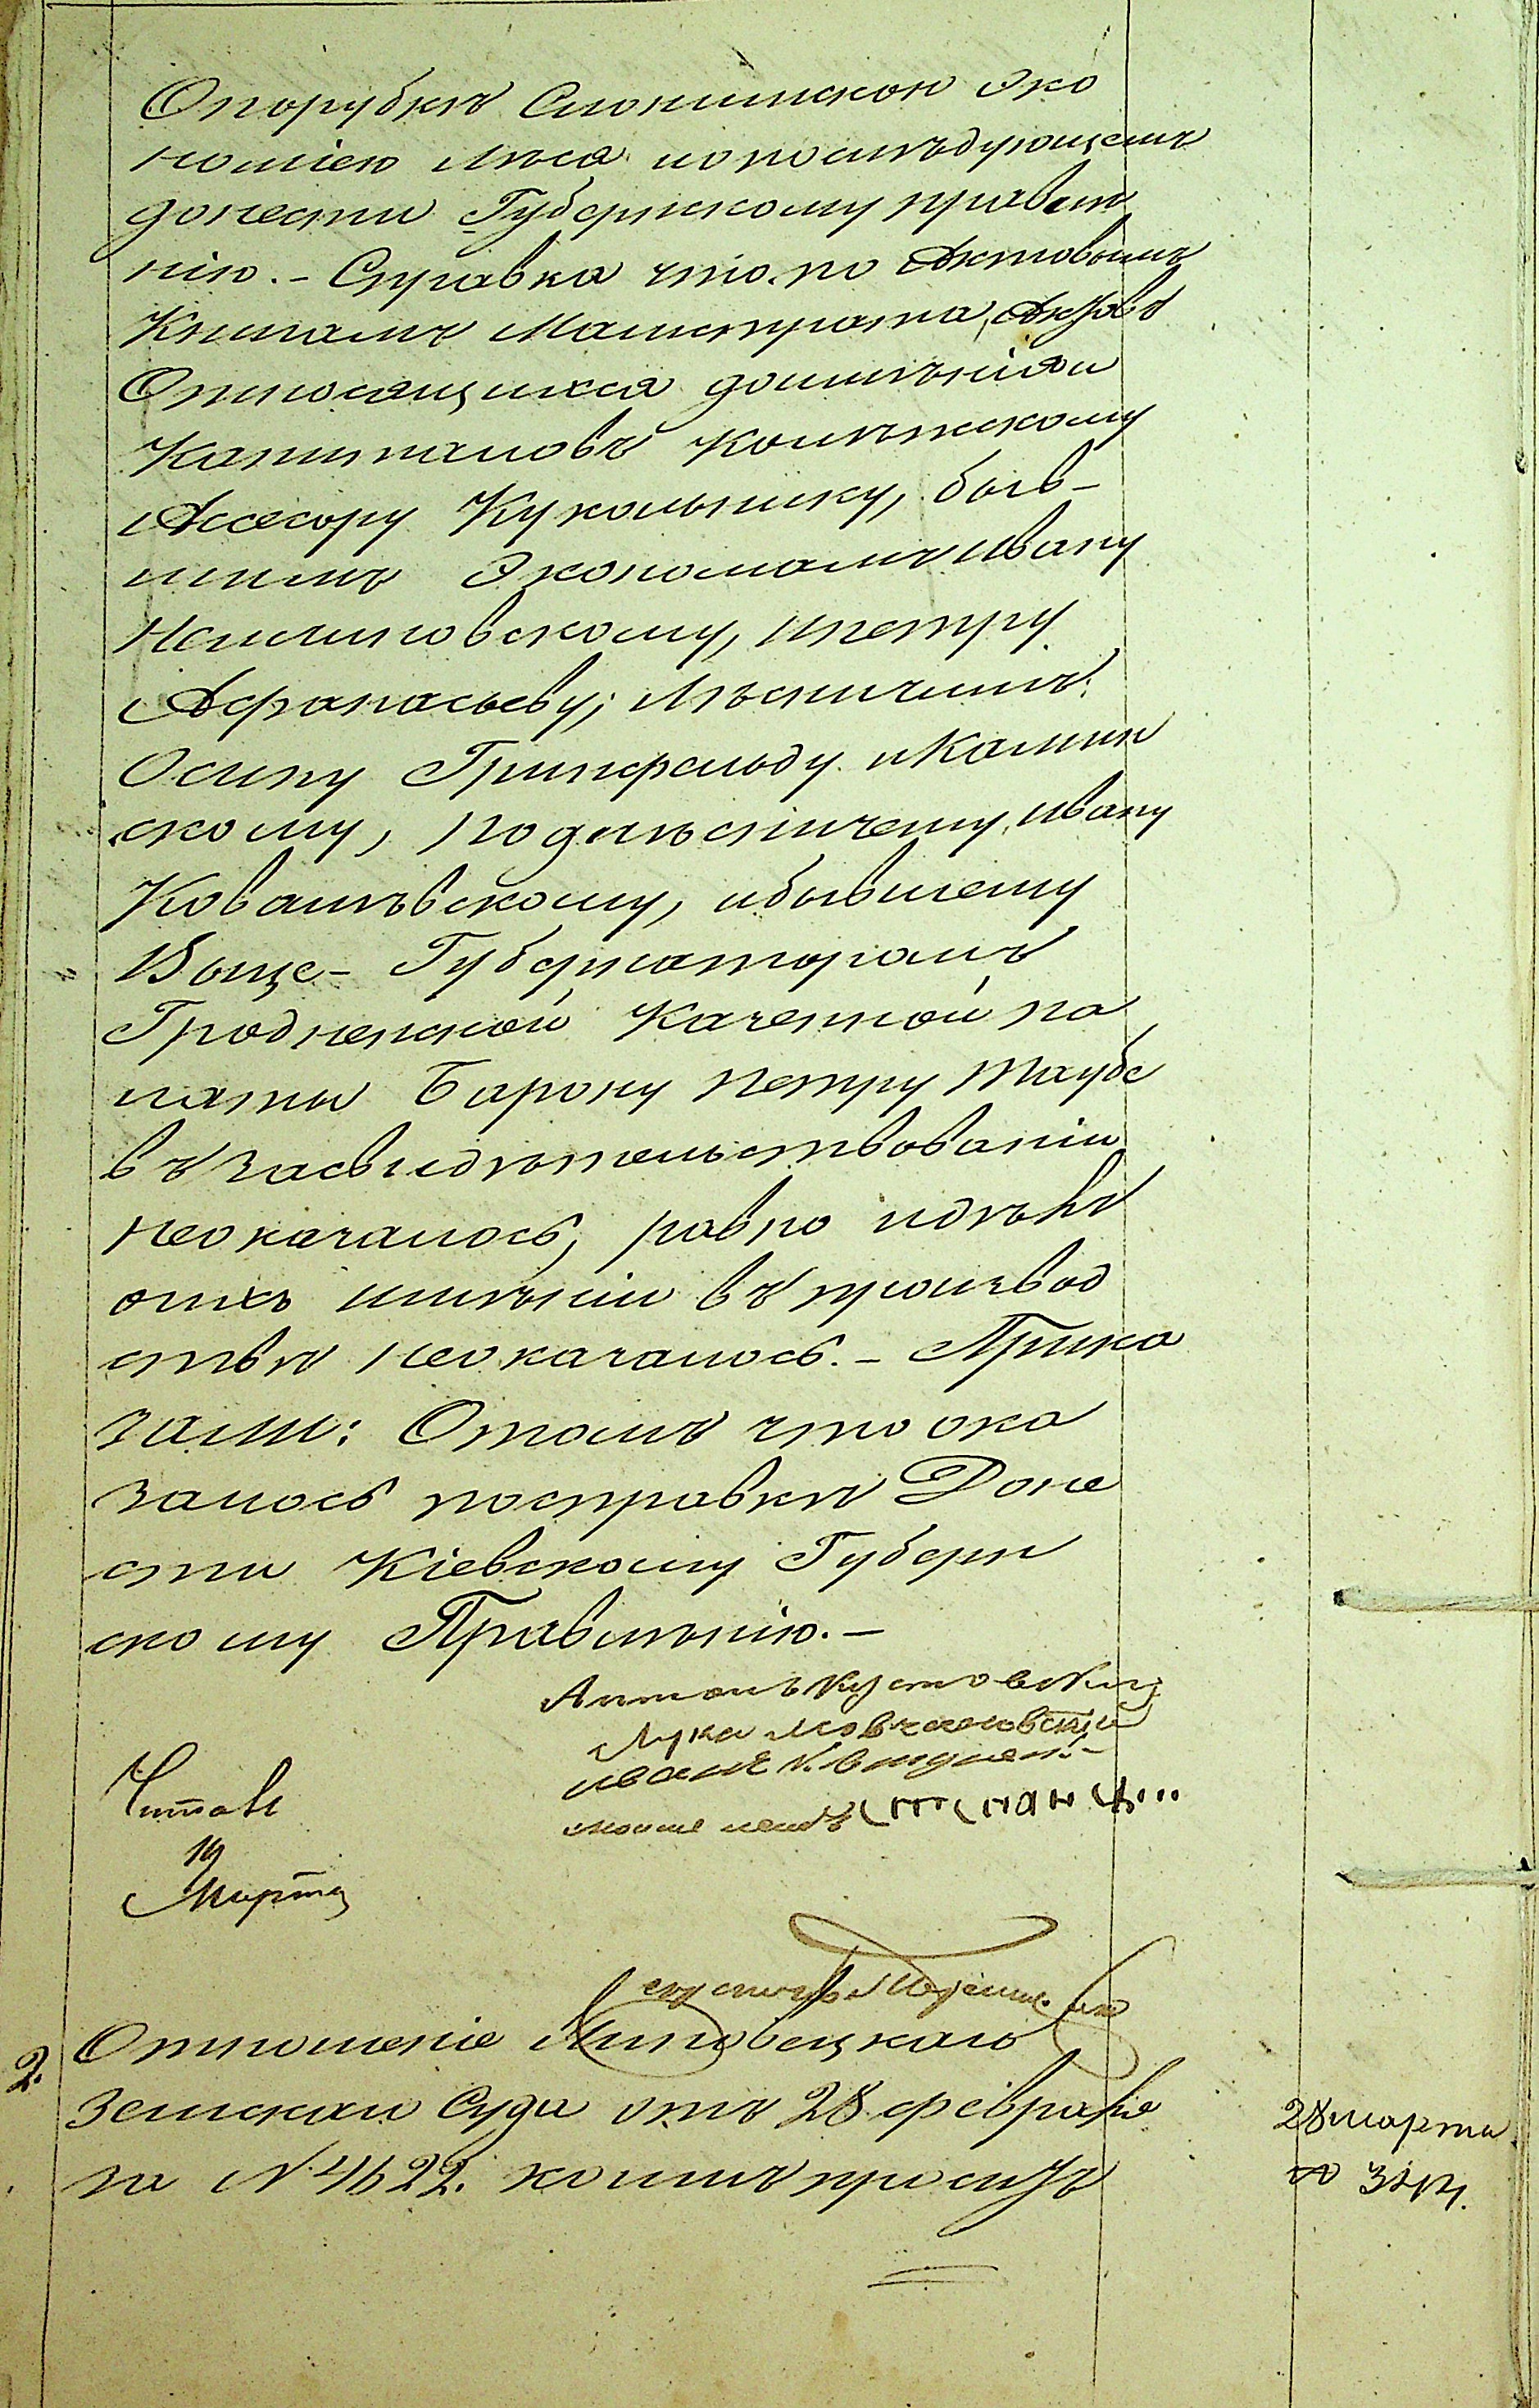 Опорубкѣ Слонимскою Эко
номіею лѣса ипопослѣдующемъ
донести Губернскому правле
нію. - Справка что по Актовымъ
Книгамъ Магистрата, Актовъ
Относящихся доимѣнія и
Капиталовъ Колѣжскому
Ассесору Кукольнику, быв-
шимъ Экономамъ Ивану
Немчиновскому, ипетру
Афанасьеву; Лѣсничимъ
Осипу Гринфельду иКамин
скому, подлѣсничему, Ивану
Ковалѣвскому, ибывшему
Выце-Губернаторомъ
Гродненской Казенной па
латы Барону Петру Таубе
въ засвидѣтельствованіи
неоказалось, равно идѣлъ
оихъ имѣніи въ производ
ствѣ неоказалось. - Прика
зали: Отомъ что ока
залось посправкѣ Доне
сти Кіевскому Губерн
скому Правлѣнію. -
Антонъ Кустовскій
Лука
иванъ
Читалъ
19
Марта
2. Отношеніе Липовецкаго
Земскаго Суда отъ 28 февраля
за №4622. коимъ проситъ
28 марта